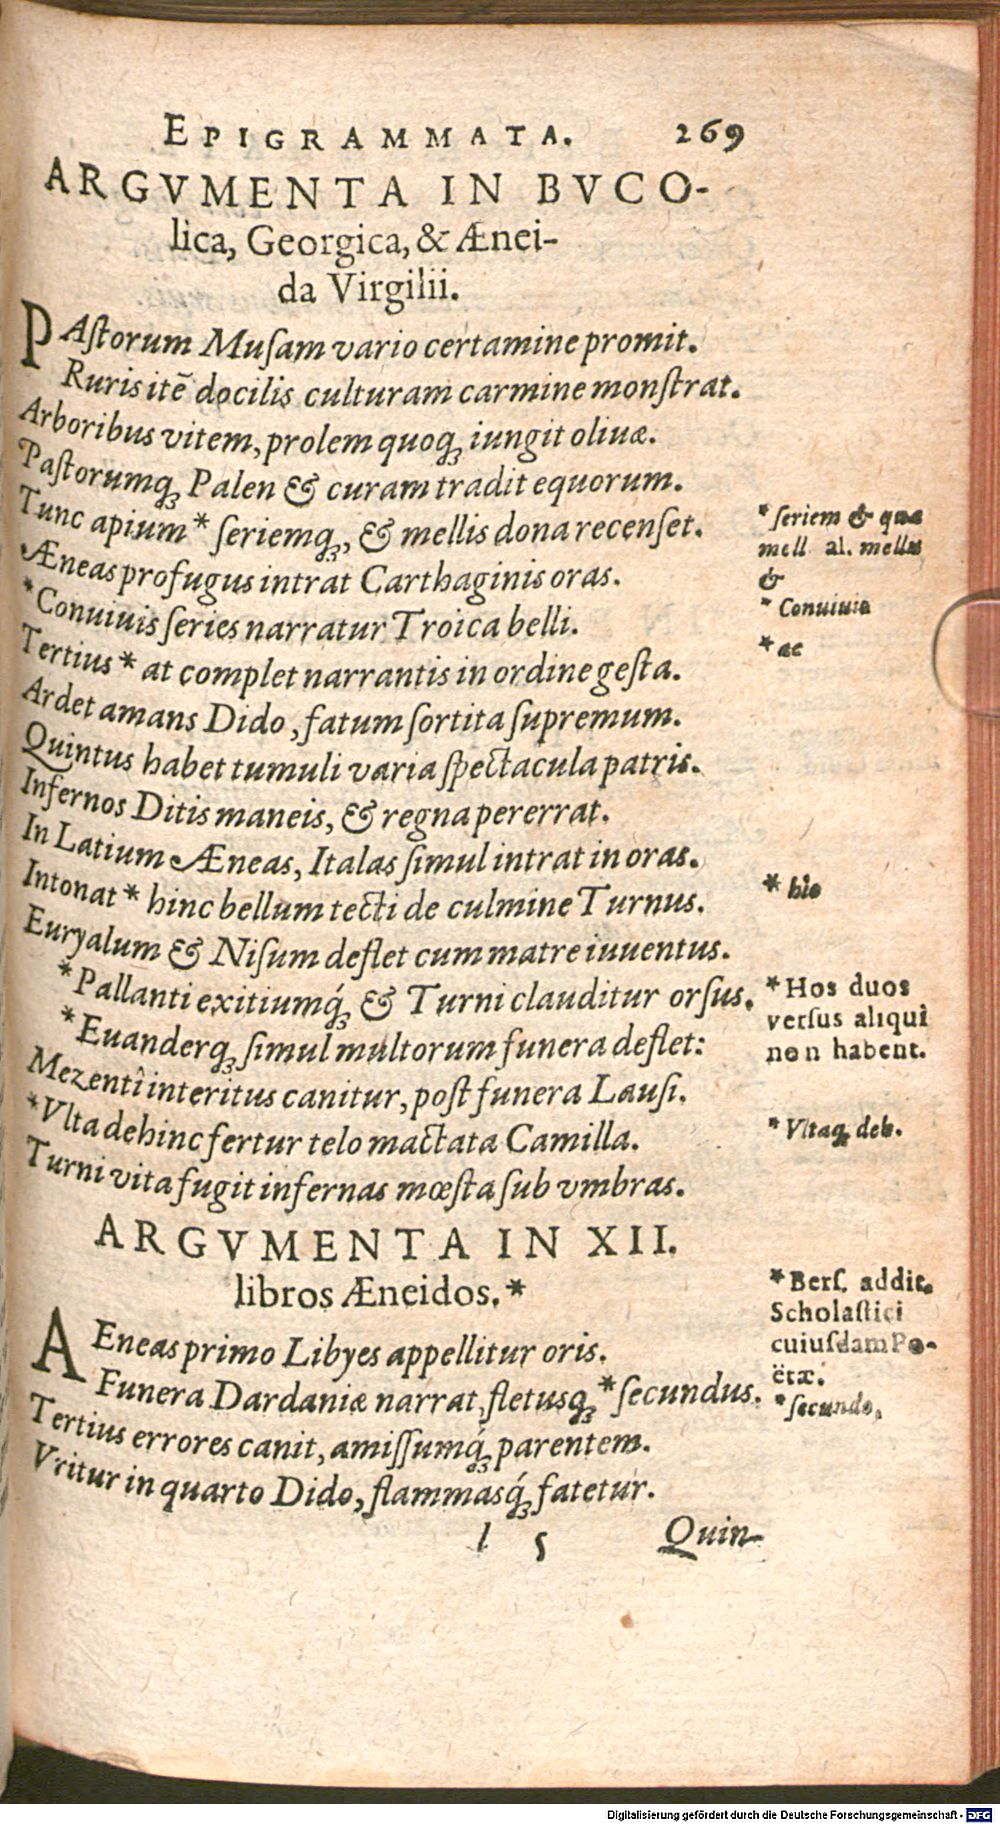 EPIGRAMMATA. 269
ARGVMENTA IN BVCO-
lica, Georgica, & Ænei-
da Virgilii.
PAſtorum Muſam vario certamine promit.
Ruris itē docilis culturam carmine monſtrat.
Arboribus vitem, prolem quoqꝫ iungit oliuæ.
Paſtorumqꝫ Palen & curam tradit equorum.
Tunc apium* ſeriemqꝫ, & mellis dona recenſet.
*ſeriem & quæ
mell al. mellis
&
Æneas profugus intrat Carthaginis oras.
*Conuiuis ſeries narratur Troica belli.
* Conuiuia
Tertius* at complet narrantis in ordine geſta.
*ac
Ardet amans Dido, fatum ſortita ſupremum.
Quintus habet tumuli varia ſpectacula patris.
Infernos Ditis maneis, & regna pererrat.
In Latium Æneas, Italas ſimul intrat in oras.
Intonat* hinc bellum tecti de culmine Turnus.
* hic
Euryalum & Niſum deflet cum matre iuuentus.
*Pallanti exitiumq́ꝫ & Turni clauditur orſus.
*Hos duos
verſus aliqui
non habent.
*Euanderqꝫ ſimul multorum funera deflet:
Mezentî interitus canitur, poſt funera Lauſi.
*Vlta dehinc fertur telo mactata Camilla.
*Vltaqꝫ deh.
Turni vita fugit infernas mœſta ſub vmbras.
ARGVMENTA IN XII.
libros Æneidos.*
*Berſ. addit.
Scholaſtici
cuiuſdam Po-
ëtæ.
AEneas primo Libyes appellitur oris.
Funera Dardaniæ narrat, fletusqꝫ *ſecundus.
*ſecundo.
Tertius errores canit, amiſſumq́ꝫ parentem.
Vritur in quarto Dido, flammasq́ꝫ fatetur.
l 5 Quin-
Digitalisierung gefördert durch die Deutsche Forschungsgemeinschaft - DFG